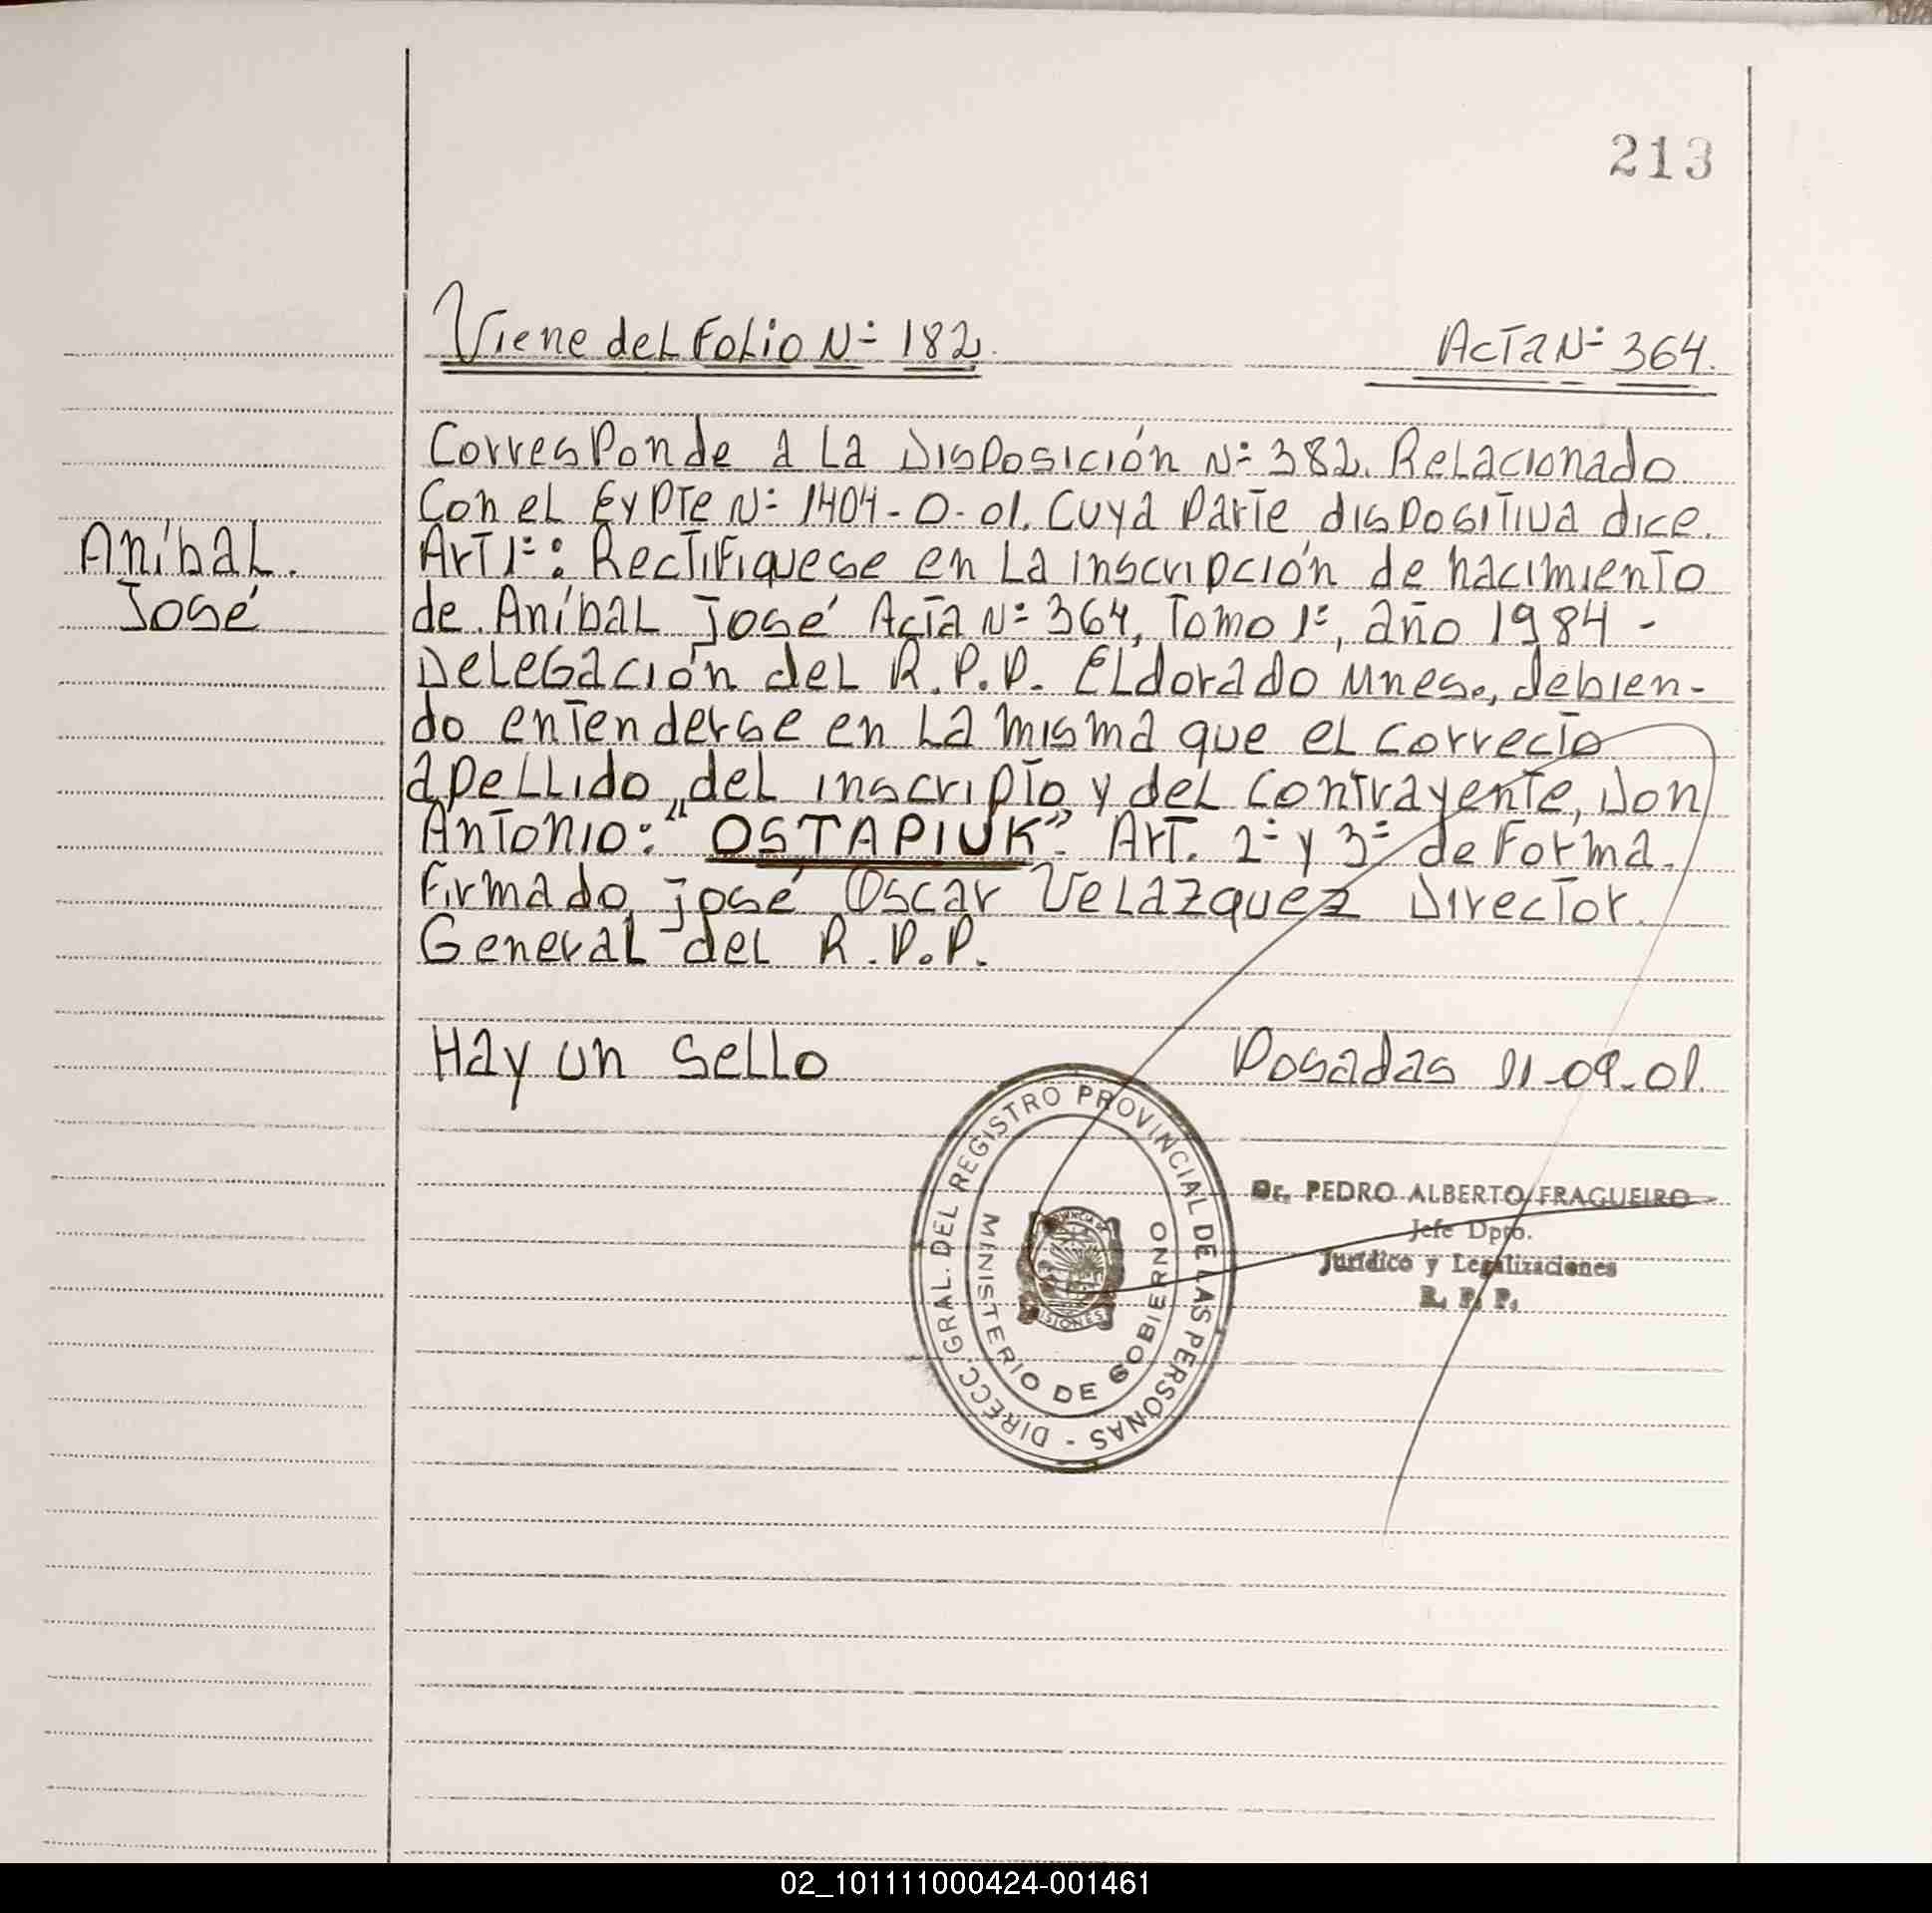 213
Viene del Folio N= 182. Acta N= 364.
Corresponde a la Disposición N= 382. Relacionado
Con el Expte N= 1404-0-01. Cuya Parte dispositiva dice.
Aníbal.
José
Art 1=: Rectifiquese en la inscripción de nacimiento
de Aníbal José Acta N= 364, Tomo 1=, año 1984 -
Delegación del R.P.P. Eldorado Mnes., debien-
do entenderse en la misma que el correcto
apellido del inscripto y del contrayente, Don
Antonio: "OSTAPIUK". Art. 2= y 3= de Forma.
Firmado José Oscar Velazquez Director
General del R.P.P.
Hay un sello Posadas 11-09-01.
DIRECC. GRAL. DEL REGISTRO PROVINCIAL DE LAS PERSONAS -
MINISTERIO DE GOBIERNO
MISIONES
Dr. PEDRO ALBERTO FRAGUEIRO
Jefe Dpto.
Jurídico y Legalizaciones
R. P. P.
02_101111000424-001461